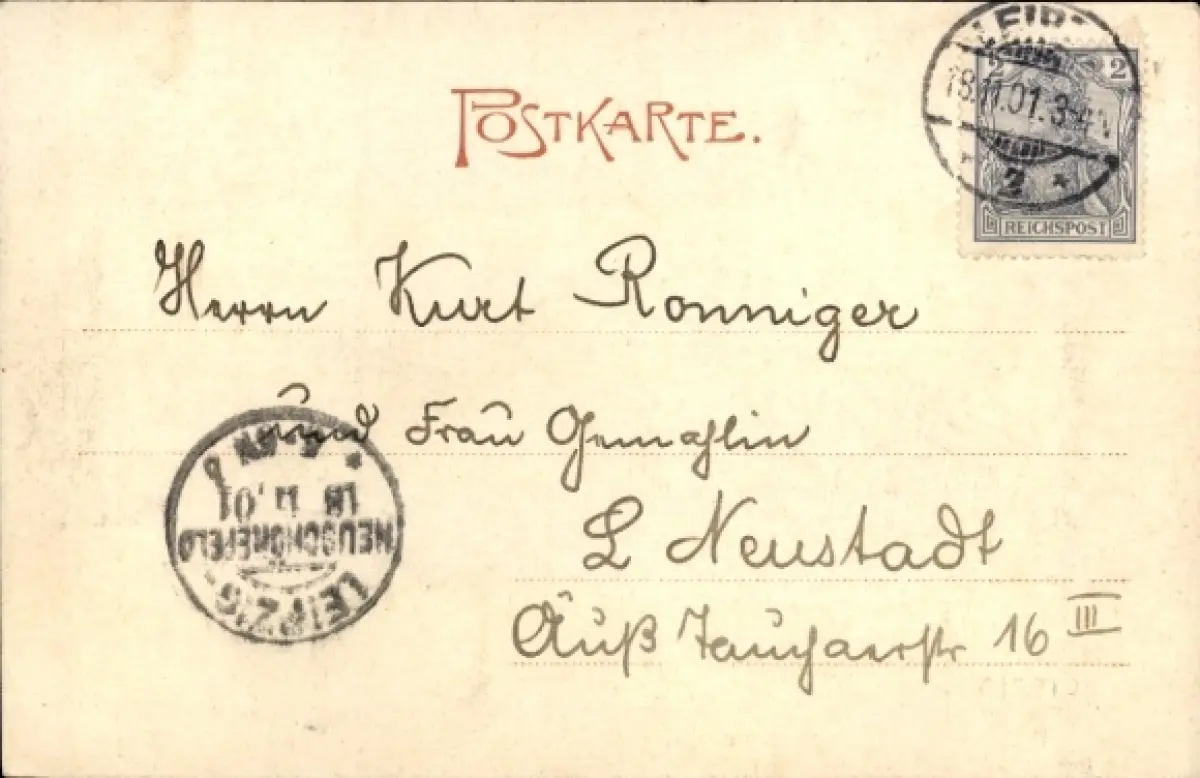 POSTKARTE.
2 2
18.11.01. 3-4
2 *
REICHSPOST
Herrn Kurt Ronniger
und Frau Gemahlin
L Neustadt
Äuß Tauchaerstr 16 III
LEIPZIG-
NEUSCHÖNEFELD
18 11 .01